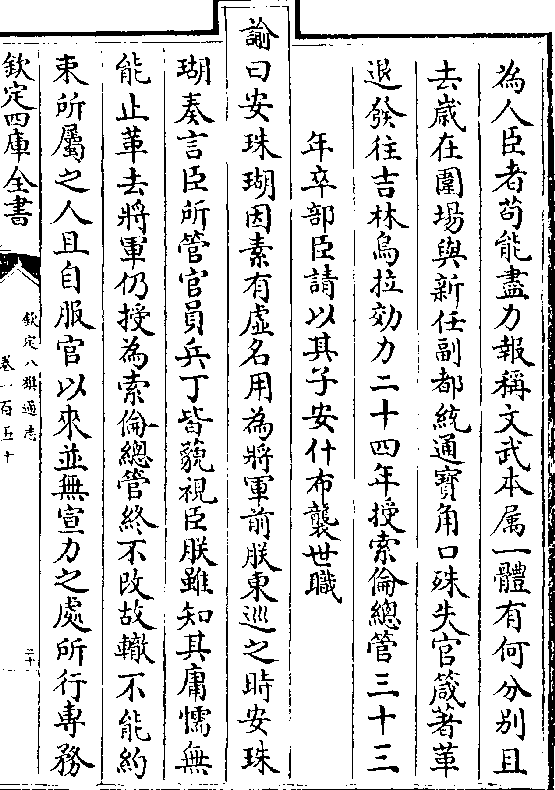 為人臣者苟能盡力報稱文武本属一體有何分別且
去嵗在圍場與新任副都統通寳角口殊失官箴著革
退發往吉林烏拉効力二十四年授索倫總管三十三
年卒部臣請以其子安什布襲世職
諭曰安珠瑚因素有虛名用為將軍前朕東巡之時安珠
瑚奏言臣所管官員兵丁皆藐視臣朕雖知其庸懦無
能止革去將軍仍授為索倫總管終不改故轍不能約
束所屬之人且自服官以來並無宣力之處所行專務
欽定四庫全書
欽定八旗通志
卷一百五十
二十